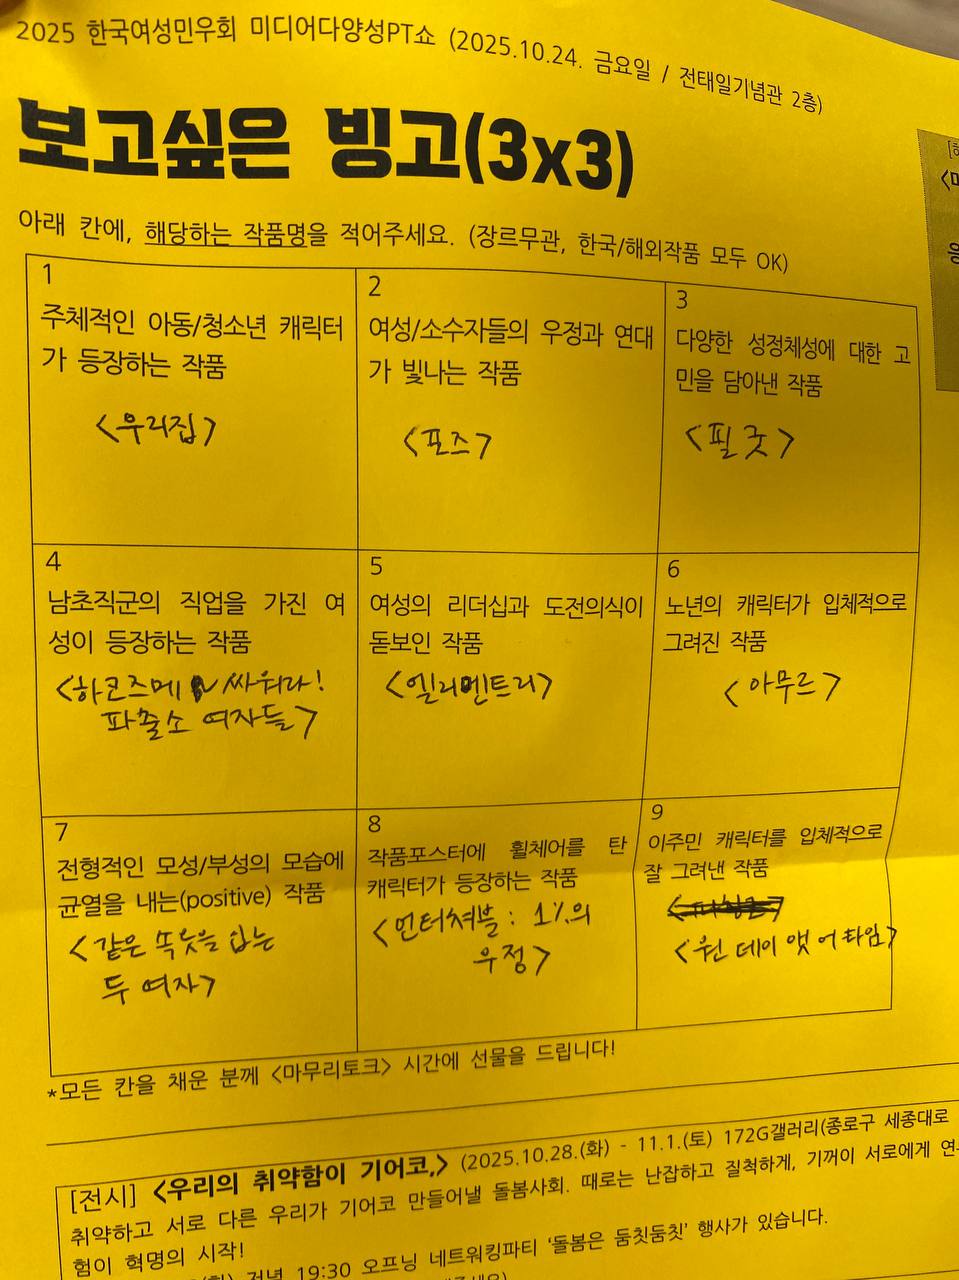 2025 한국여성민우회 미디어다양성PT쇼 (2025.10.24. 금요일 / 전태일기념관 2층)
보고싶은 빙고(3x3)
아래 칸에, 해당하는 작품명을 적어주세요. (장르무관, 한국/해외작품 모두 OK)
1
주체적인 아동/청소년 캐릭터
가 등장하는 작품
<우리집>
2
여성/소수자들의 우정과 연대
가 빛나는 작품
<포즈>
3
다양한 성정체성에 대한 고
민을 담아낸 작품
<필 굿>
4
남초직군의 직업을 가진 여
성이 등장하는 작품
<하코즈메 싸워라!
파출소 여자들>
5
여성의 리더십과 도전의식이
돋보인 작품
<엘리멘트리>
6
노년의 캐릭터가 입체적으로
그려진 작품
<아무르>
7
전형적인 모성/부성의 모습에
균열을 내는(positive) 작품
<같은 속옷을 입는
두 여자>
8
작품포스터에 휠체어를 탄
캐릭터가 등장하는 작품
<언터처블 : 1%의
우정>
9
이주민 캐릭터를 입체적으로
잘 그려낸 작품
<원 데이 앳 어 타임>
*모든 칸을 채운 분께 <마무리토크> 시간에 선물을 드립니다!
[전시] <우리의 취약함이 기어코,> (2025.10.28.(화) - 11.1.(토) 172G갤러리(종로구 세종대로
취약하고 서로 다른 우리가 기어코 만들어낼 돌봄사회. 때로는 난잡하고 질척하게, 기꺼이 서로에게
험이 혁명의 시작!
저녁 19:30 오프닝 네트워킹파티 '돌봄은 둠칫둠칫' 행사가 있습니다.